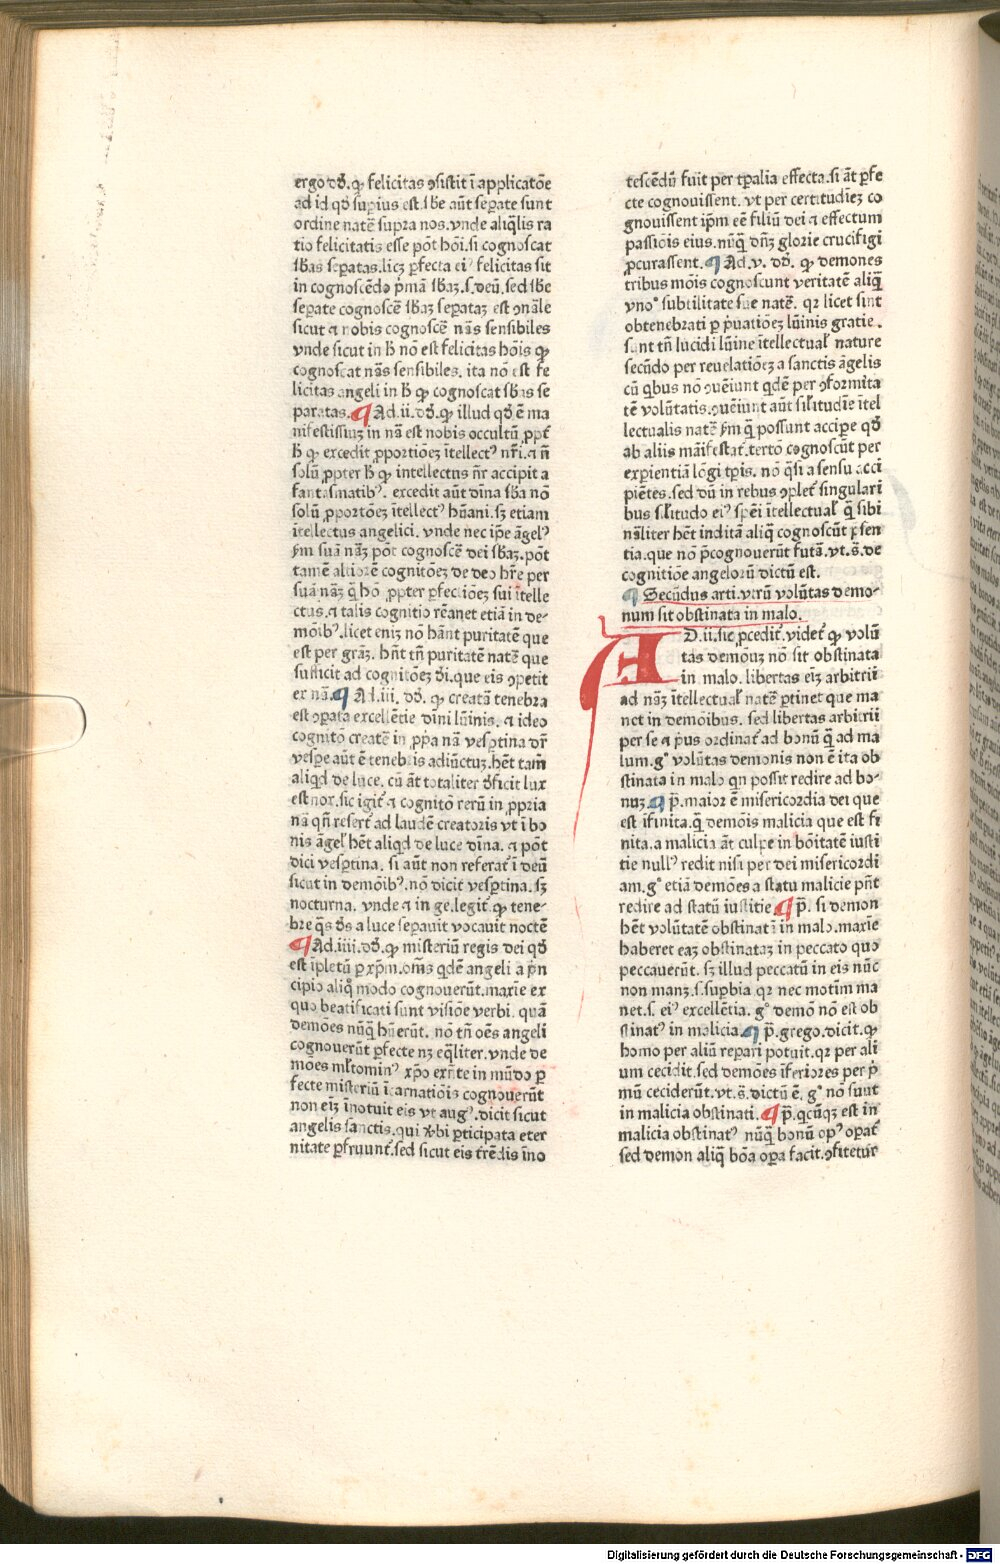 ergo dd̄. ꝙ felicitas ꝯsistit ī applicatōe
ad id qd̄ supius est. sbe aūt sepate sunt
ordine natē supra nos. vnde aliq̄lis ra
tio felicitatis esse pōt hōi. si cognoscat
sbas sepatas. licꝫ pfecta eiꝰ felicitas sit
in cognoscēdo pͥmā sbaꝫ. s. deū. sed sbe
sepate cognoscē sbaꝫ sepataꝫ est ꝯnāle
sicut ⁊ nobis cognoscē nās sensibiles
vnde sicut in h̄ nō est felicitas hōis ꝙ
cognoscat nās sensibiles. ita nō est fe
licitas angeli in h̄ ꝙ cognoscat sbas se
paratas. ¶ Ad. ii. dd̄. ꝙ illud qd̄ ē ma
nifestissiuꝫ in nā est nobis occultū ꝓpt̄
h̄ ꝙ excedit ꝓportiōeꝫ itellectꝰ nr̄i. ⁊ n̄
solū ꝓpter h̄ ꝙ intellectus nr̄ accipit a
fantasmatibꝰ. excedit aūt diīna sba nō
solū ꝓportōeꝫ itellectꝰ hūani. sꝫ etiam
itellectus angelici. vnde nec ip̄e āgelꝰ
ẜm suā nāꝫ pōt cognoscē dei sbaꝫ. pōt
tamē altiorē cognitōeꝫ de deo hr̄e per
suā nāꝫ q̄ hō ꝓpter pfectiōeꝫ sui itelle
ctus. ⁊ talis cognitio rēanet etiā in de-
mōibꝰ. licet eniꝫ nō hāt puritatē que
est per grāꝫ. hn̄t tn̄ puritatē natē que
sufficit ad cognitōeꝫ dī. que eis ꝯpetit
ex nā. ¶ Ad. iii. dd̄. ꝙ creatā tenebra
est ꝯpata excellētie dīni lūinis. ⁊ ideo
cognitō creatē in ꝓpa nā vesptina dr̄
vespe aūt ē tenebris adiūctuꝫ. hēt tam̄
aliqd̄ de luce. cū āt totaliter d̄ficit lux
est nox. sic igit̄ ⁊ cognitō rerū in ꝓpria
nā qn̄ refert̄ ad laudē creatoris vt ī bo
nis āgel̄ hēt aliqd̄ de luce dīna. ⁊ pōt
dici vesptina. si aūt non referat̄ ī deū
sicut in demōibꝰ. nō dicit̄ vesptina. sꝫ
nocturna. vnde ⁊ in ge. legit̄ ꝙ tene-
bre q̄s d̄s a luce sepauit vocauit noctē
¶ Ad. iiii. dd̄. ꝙ misteriū regis dei qd̄
est īpletū p xp̄m. om̄s qdē angeli a pͥn
cipio aliq̄ modo cognouerūt. maxie ex
quo beatificati sunt visiōe verbi. quā
demōes nūq̄ hūerūt. nō tn̄ oēs angeli
cognouerūt pfecte nꝫ eq̄liter. vnde de
mōes ml̄tominꝰ xp̄o exn̄te in mūdo p
fecte misteriū īcarnatiōis cognouerūt
non eiꝫ īnotuit eis vt augꝰ. dicit sicut
angelis sanctis. qui v̄bi pticipata eter
nitate pfruunt̄. sed sicut eis trēdis īno
tescēdū fuit per tp̄alia effecta. si āt pfe
cte cognouissent. vt per certitudieꝫ co
gnouissent ip̄m eē filiū dei ⁊ effectum
passiōis eius. nūq̄ dn̄ꝫ glorie crucifigi
ꝓcurassent. ¶ Ad. v. dd̄. ꝙ demones
tribus mōis cognoscunt veritatē aliq̄
vnoº subtilitate sue natē. qꝛ licet sint
obtenebrati p pͥuatiōeꝫ lūinis gratie.
sunt tn̄ lucidi lūine ītellectual̄ nature
secūdo per reuelatiōeꝫ a sanctis āgelis
cū qbus nō ꝯueiunt qdē per ꝯformita
tē volūtatis. ꝯueiunt aūt sil̄itudie ītel
lectualis natē ẜm q̄ possunt accipe qd̄
ab aliis māifestat̄. tertō cognoscūt per
expientiā lōgi tp̄is. nō q̄si a sensu acci
piētes. sed dū in rebus ꝯplet̄ singulari
bus sil̄itudo eiꝰ spēi ītellectual̄ q̄ sibi
nāliter hēt inditā aliq̄ cognoscūt pͥsen
tia. que nō pͥcognouerūt futā. vt. s̄. de
cognitiōe angelorū dictū est.
¶ Secūdus arti. vtrū volūtas demo-
num sit obstinata in malo.
AD. ii. sic pͥcedit̄. videt̄ ꝙ volū
tas demōuꝫ nō sit obstinata
in malo. libertas eiꝫ arbitrii
ad nāꝫ ītellectual̄ natē ptinet que ma
net in demōibus. sed libertas arbitrii
per se ⁊ pͥus ordinat̄ ad bonū q̄ ad ma
lum. gº volūtas demonis non ē ita ob
stinata in malo qn possit redire ad bo-
nuꝫ. ¶ p̄. maior ē misericordia dei que
est ifinita. q̄ demōis malicia que est fi
nita. a malicia āt culpe in bōitatē iusti
tie nullꝰ redit nisi per dei misericordi
am. gº etiā demōes a statu malicie pn̄t
redire ad statū iustitie ¶ p̄. si demon
hēt volūtatē obstinatā in malo. maxie
haberet eaꝫ obstinataꝫ in peccato quo
peccauerūt. sꝫ illud peccatū in eis nūc
non manꝫ. s. supbia qꝛ nec motiuꝫ ma
net. s. eiꝰ excellētia. gº demō nō est ob
stinatꝰ in malicia. ¶ p̄. grego. dicit. ꝙ
homo per aliū repari potuit. qꝛ per ali
um cecidit. sed demōes īferiores per pͥ
mū ceciderūt. vt. s̄. dictū ē. gº nō sunt
in malicia obstinati. ¶ p̄. qcūqꝫ est in
malicia obstinatꝰ nūq̄ bonū opꝰ opat̄
sed demon aliq̄ bōa opa facit. ꝯfitetur
Digitalisierung gefördert durch die Deutsche Forschungsgemeinschaft - DFG